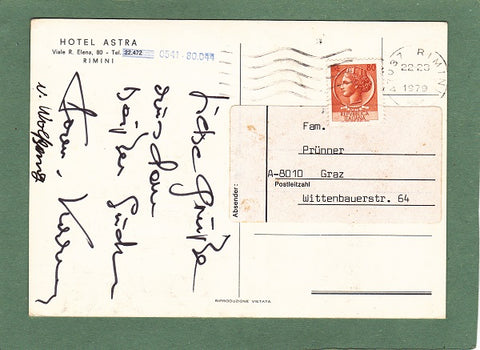 HOTEL ASTRA
Viale R. Elena, 80 - Tel. 22.472 0541-80.044
RIMINI
Liebe Grüße
aus dem
heißen Süden
Karin
u. Wolfgang
RIMINI
22-23
1979
80
REPUBBLICA
ITALIANA
Absender:
Fam.
Prünner
A-8010 Graz
Postleitzahl
Wittenbauerstr. 64
RIPRODUZIONE VIETATA